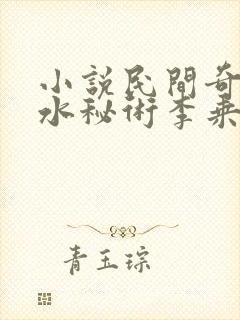 小說民間奇
水秘術李乘
青玉琮